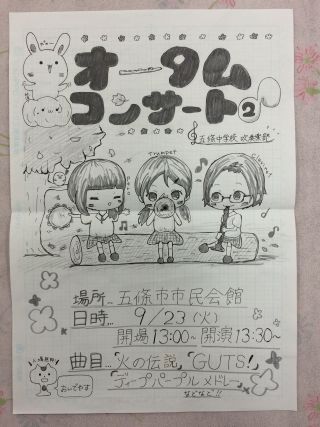 オータム
コンサート2
五條中学校 吹奏楽部
Trumpet
Clarinet
場所… 五條市市民会館
日時… 9/23(火)
開場13:00~開演13:30~
曲目…「火の伝説」「GUTS!」
入場無料
「ディープパープルメドレー」
おいでやす
などなど!!